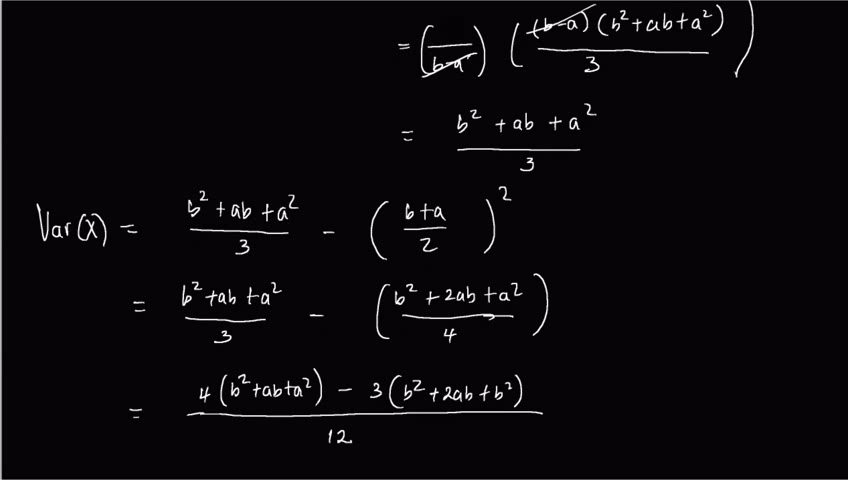 = ( / (b-a) ) ( (b-a) (b² + ab + a²) / 3 )
= b² + ab + a² / 3
Var(X) = b² + ab + a² / 3 - ( b+a / 2 )²
= b² + ab + a² / 3 - ( b² + 2ab + a² / 4 )
= 4 ( b² + ab + a² ) - 3 ( b² + 2ab + b² ) / 12